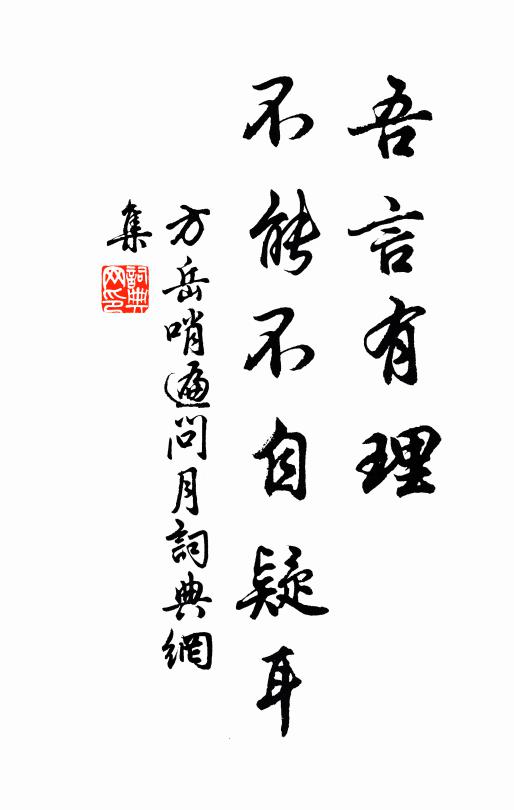 吾言有理
不能不自疑耳
方岳哨遍問月詞典網
集
詞典
网印